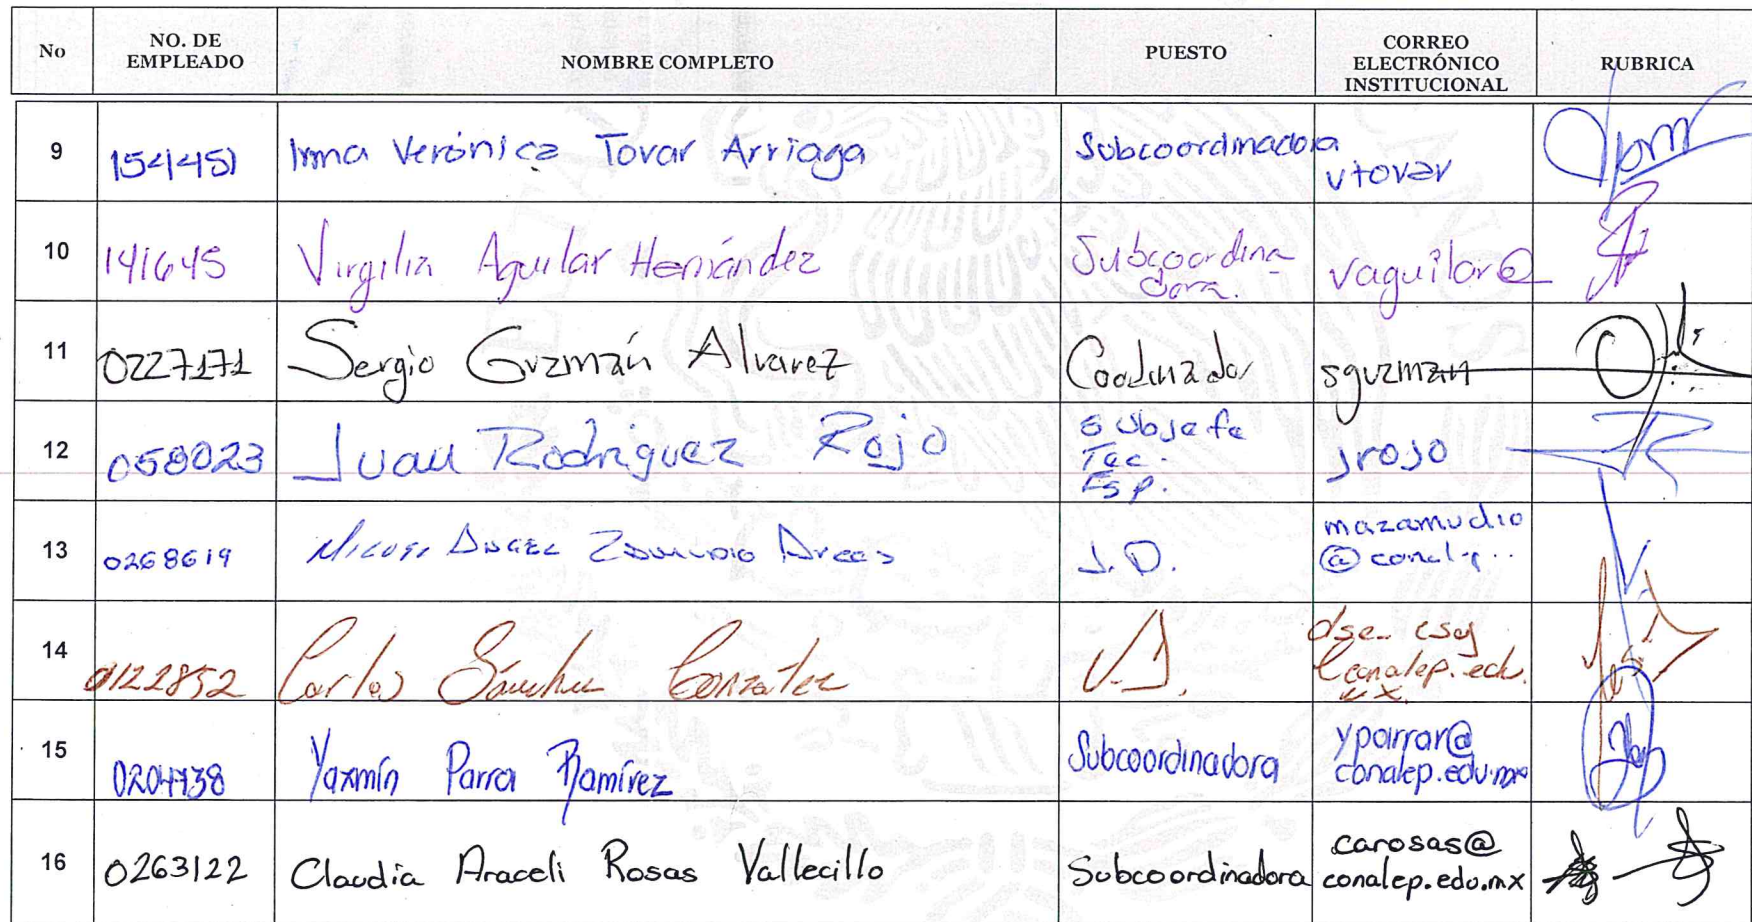 No NO. DE EMPLEADO NOMBRE COMPLETO PUESTO CORREO ELECTRÓNICO INSTITUCIONAL RUBRICA
9 154451 Irma Verónica Tovar Arriaga Subcoordinadora vtovar
10 141645 Virgilia Aguilar Hernández Subcoordina dora. vaguilar@
11 0227171 Sergio Guzmán Alvarez Coodinador sguzman
12 058023 Juan Rodriguez Rojo Subjefe Tec. Esp. jrojo
13 0268619 Miguel Angel Zamudio Arcos J.D. mazamudio @conalep..
14 0122852 Carlos Sánchez González J.D. conalep.edu. mx
15 0204738 Yaxmín Parra Ramírez Subcoordinadora yparrar@ conalep.edu.mx
16 0263122 Claudia Araceli Rosas Vallecillo Subcoordinadora carosas@ conalep.edu.mx